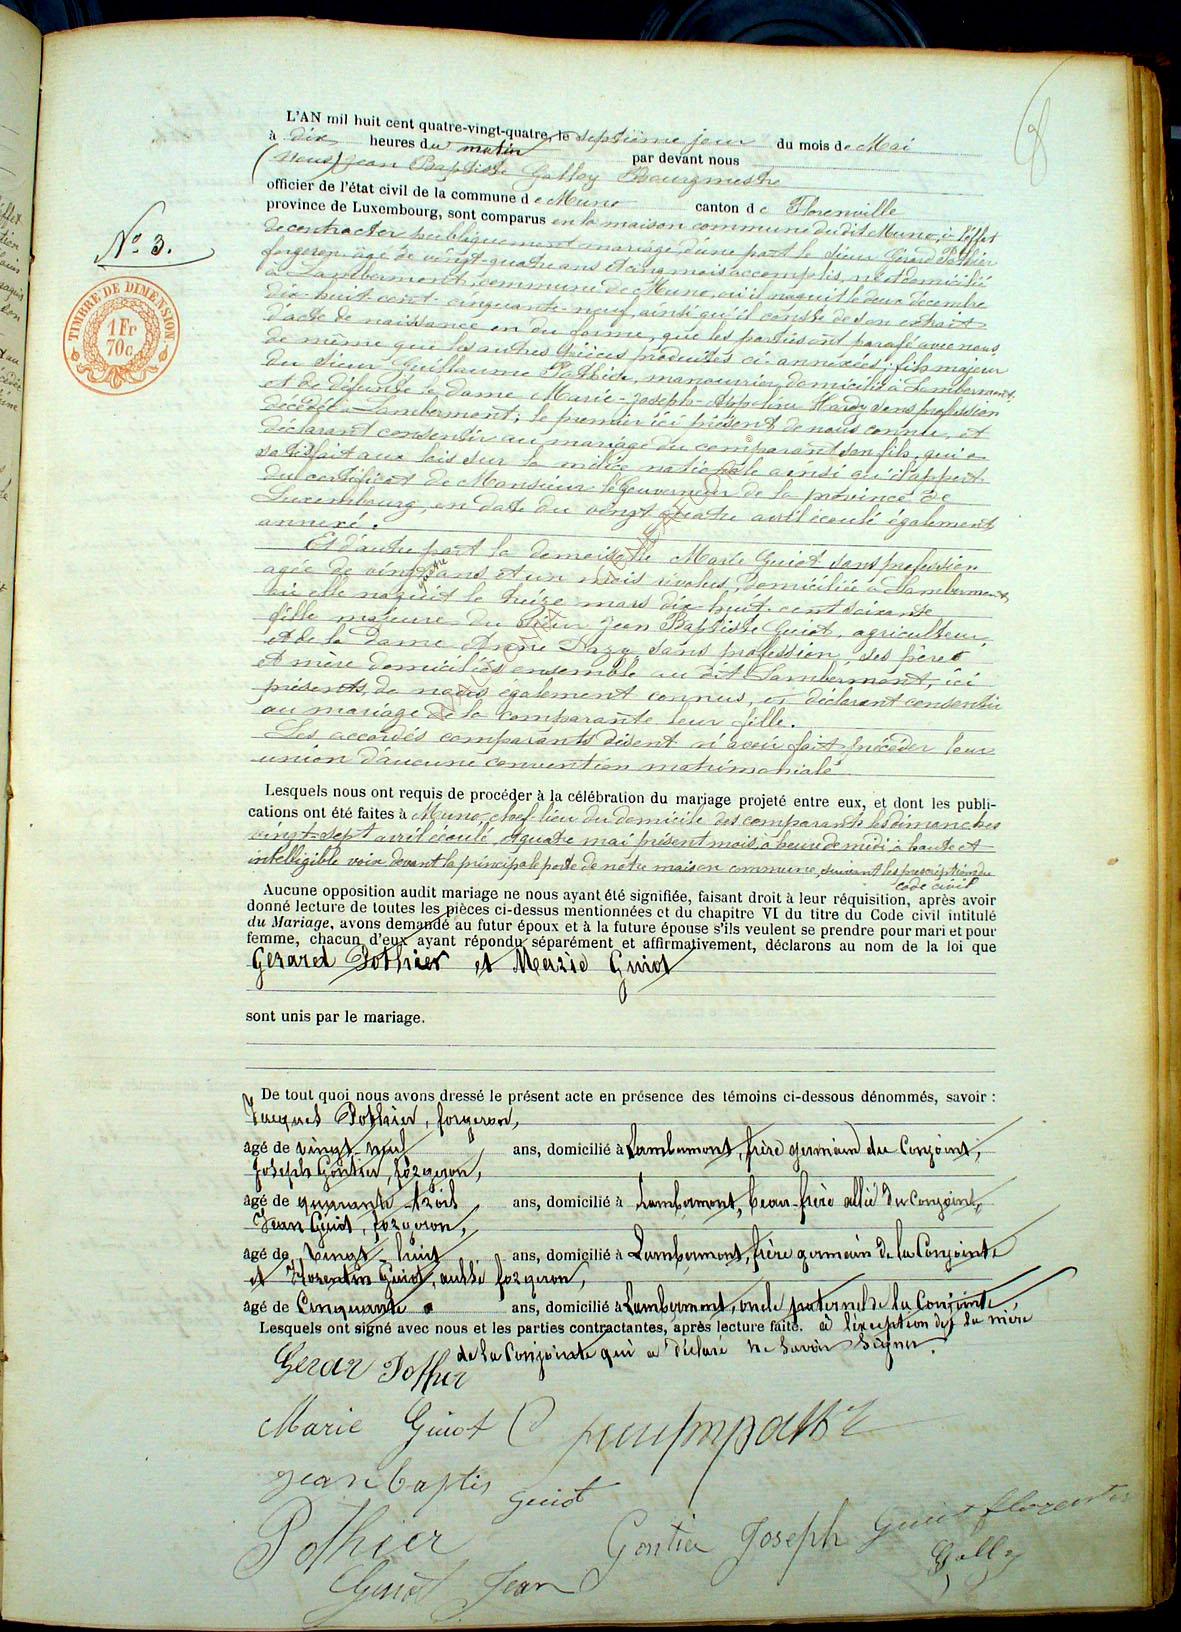 L'AN mil huit cent quatre-vingt-quatre, le septième jour du mois de Mai
à dix heures du matin par devant nous
(nous) Jean Baptiste Golley Bourgmestre
officier de l'état civil de la commune de Muno canton de Florenville
province de Luxembourg, sont comparus en la maison commune du dit Muno, à l'effet
No. 3.
de contracter publiquement mariage, d'une part le sieur Gérard Pothier
forgeron âgé de vingt-quatre ans et cinq mois accomplis, né et domicilié
à Lambermont, commune de Muno, où il naquit le deux décembre
dix-huit-cent-cinquante-neuf, ainsi qu'il conste de son extrait
d'acte de naissance en due forme, que les parties ont parafé avec nous
de même que les autres pièces produites ci-annexées; fils majeur
du sieur Guillaume Pothier, manouvrier, domicilié à Lambermont
et de défunte la dame Marie-Joseph-Appoline Hardy sans profession
décédée à Lambermont; le premier ici présent de nous connu, et
déclarant consentir au mariage du comparant son fils, qui a
satisfait aux lois sur la milice nationale ainsi qu'il appert
du certificat de Monsieur le Gouverneur de la province de
Luxembourg, en date du vingt quatre avril écoulé également
annexé.
TIMBRE DE DIMENSION
1 Fr
70c.
Et d'autre part la demoiselle Marie Guiot sans profession
agée de vingt quatre ans et un mois révolus, domiciliée à Lambermont,
où elle naquit le treize mars dix huit cent soixante
fille majeure du sieur Jean Baptiste Guiot, agriculteur,
et de la Dame Anne Lazy, sans profession, ses père
et mère domiciliés ensemble au dit Lambermont, ici
présents, de nous également connus, et déclarant consentir
au mariage de la comparante leur fille.
Les accordés comparants disent n'avoir fait précéder leur
union d'aucune convention matrimoniale
Lesquels nous ont requis de procéder à la célébration du mariage projeté entre eux, et dont les publi-
cations ont été faites à Muno, chef-lieu du domicile des comparants les dimanches
vingt-sept avril écoulé, et quatre mai présent mois, à heure de midi à haute et
intelligible voix devant la principale porte de notre maison commune, suivant les prescriptions du
code civil
Aucune opposition audit mariage ne nous ayant été signifiée, faisant droit à leur réquisition, après avoir
donné lecture de toutes les pièces ci-dessus mentionnées et du chapitre VI du titre du Code civil intitulé
du Mariage, avons demandé au futur époux et à la future épouse s'ils veulent se prendre pour mari et pour
femme, chacun d'eux ayant répondu séparément et affirmativement, déclarons au nom de la loi que
Gérard Pothier et Marie Guiot
sont unis par le mariage.
De tout quoi nous avons dressé le présent acte en présence des témoins ci-dessous dénommés, savoir :
Jacques Pothier, forgeron,
âgé de vingt-neuf ans, domicilié à Lambermont, frère germain du Conjoint;
Joseph Gontier, forgeron,
âgé de quarante-trois ans, domicilié à Lambermont, beau-frère allié du Conjoint,
Jean Guiot, forgeron,
âgé de vingt-huit ans, domicilié à Lambermont, frère germain de la Conjointe
et Florentin Guiot, aussi forgeron,
âgé de Cinquante ans, domicilié à Lambermont, oncle paternel de la Conjointe
Lesquels ont signé avec nous et les parties contractantes, après lecture faite. à l'exception de la mère
de la Conjointe qui a déclaré ne savoir signer.
Gerar Pothier
Marie Guiot
Jean baptis Guiot
Pothier Gontier Joseph Guiot florentin
Guiot Jean Golley